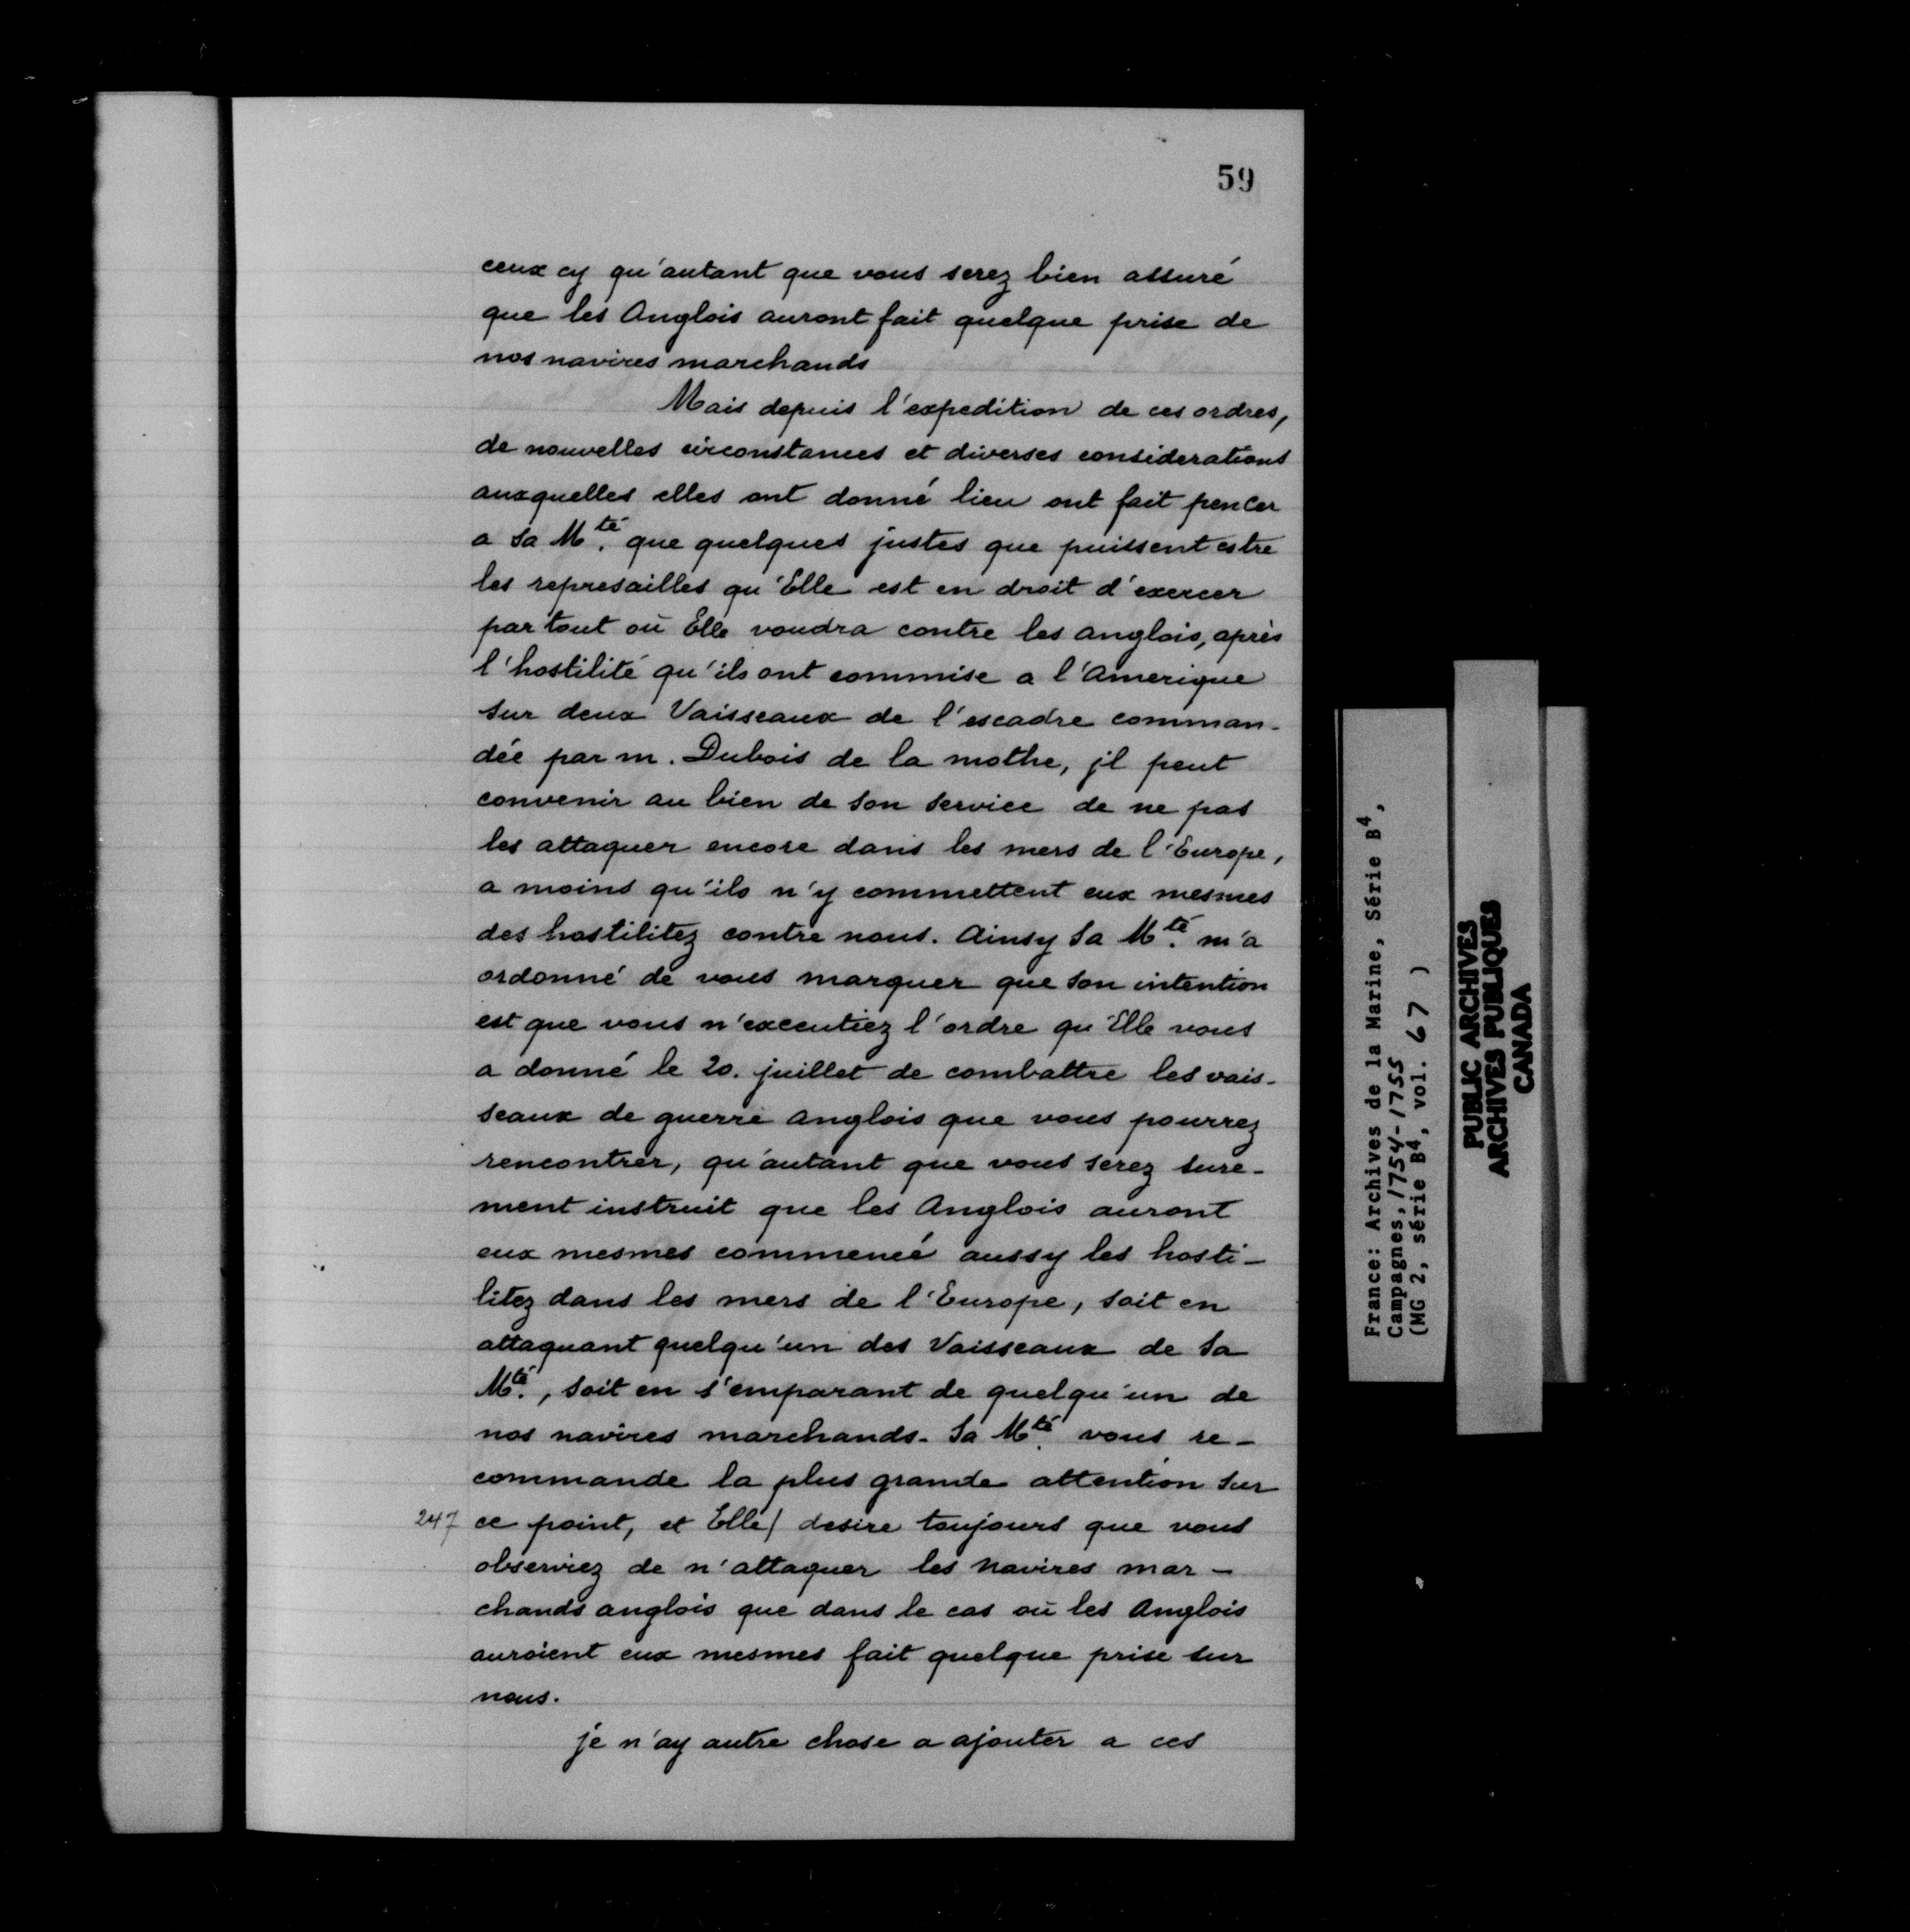 59
ceux cy qu'autant que vous serez bien assuré
que les Anglois auront fait quelque prise de
nos navires marchands
Mais depuis l'expedition de ces ordres,
de nouvelles circonstances et diverses considerations
auxquelles elles ont donné lieu ont fait penser
a Sa Mté. que quelques justes que puissent estre
les represailles qu'Elle est en droit d'exercer
par tout où Elle voudra contre les anglois, après
l'hostilité qu'ils ont commise a l'Amerique
sur deux Vaisseaux de l'escadre comman-
dée par m. Dubois de la mothe, jl peut
convenir au bien de son service de ne pas
les attaquer encore dans les mers de l'Europe,
a moins qu'ils n'y commettent eux mesmes
des hostilitez contre nous. Ainsy Sa Mté. m'a
ordonné de vous marquer que son intention
est que vous n'executiez l'ordre qu'Elle vous
a donné le 20. juillet de combattre les vais-
seaux de guerre anglois que vous pourrez
rencontrer, qu'autant que vous serez sure-
ment instruit que les Anglois auront
eux mesmes commencé aussy les hosti-
litez dans les mers de l'Europe, soit en
attaquant quelqu'un des Vaisseaux de Sa
Mté., soit en s'emparant de quelqu'un de
nos navires marchands. Sa Mté. vous re-
commande la plus grande attention sur
247 ce point, et Elle/ desire toujours que vous
observiez de n'attaquer les navires mar-
chands anglois que dans le cas où les Anglois
auroient eux mesmes fait quelque prise sur
nous.
je n'ay autre chose a ajouter a ces
France: Archives de la Marine, Série B4,
Campagnes, 1754-1755
(MG 2, série B4, vol. 67 )
PUBLIC ARCHIVES
ARCHIVES PUBLIQUES
CANADA